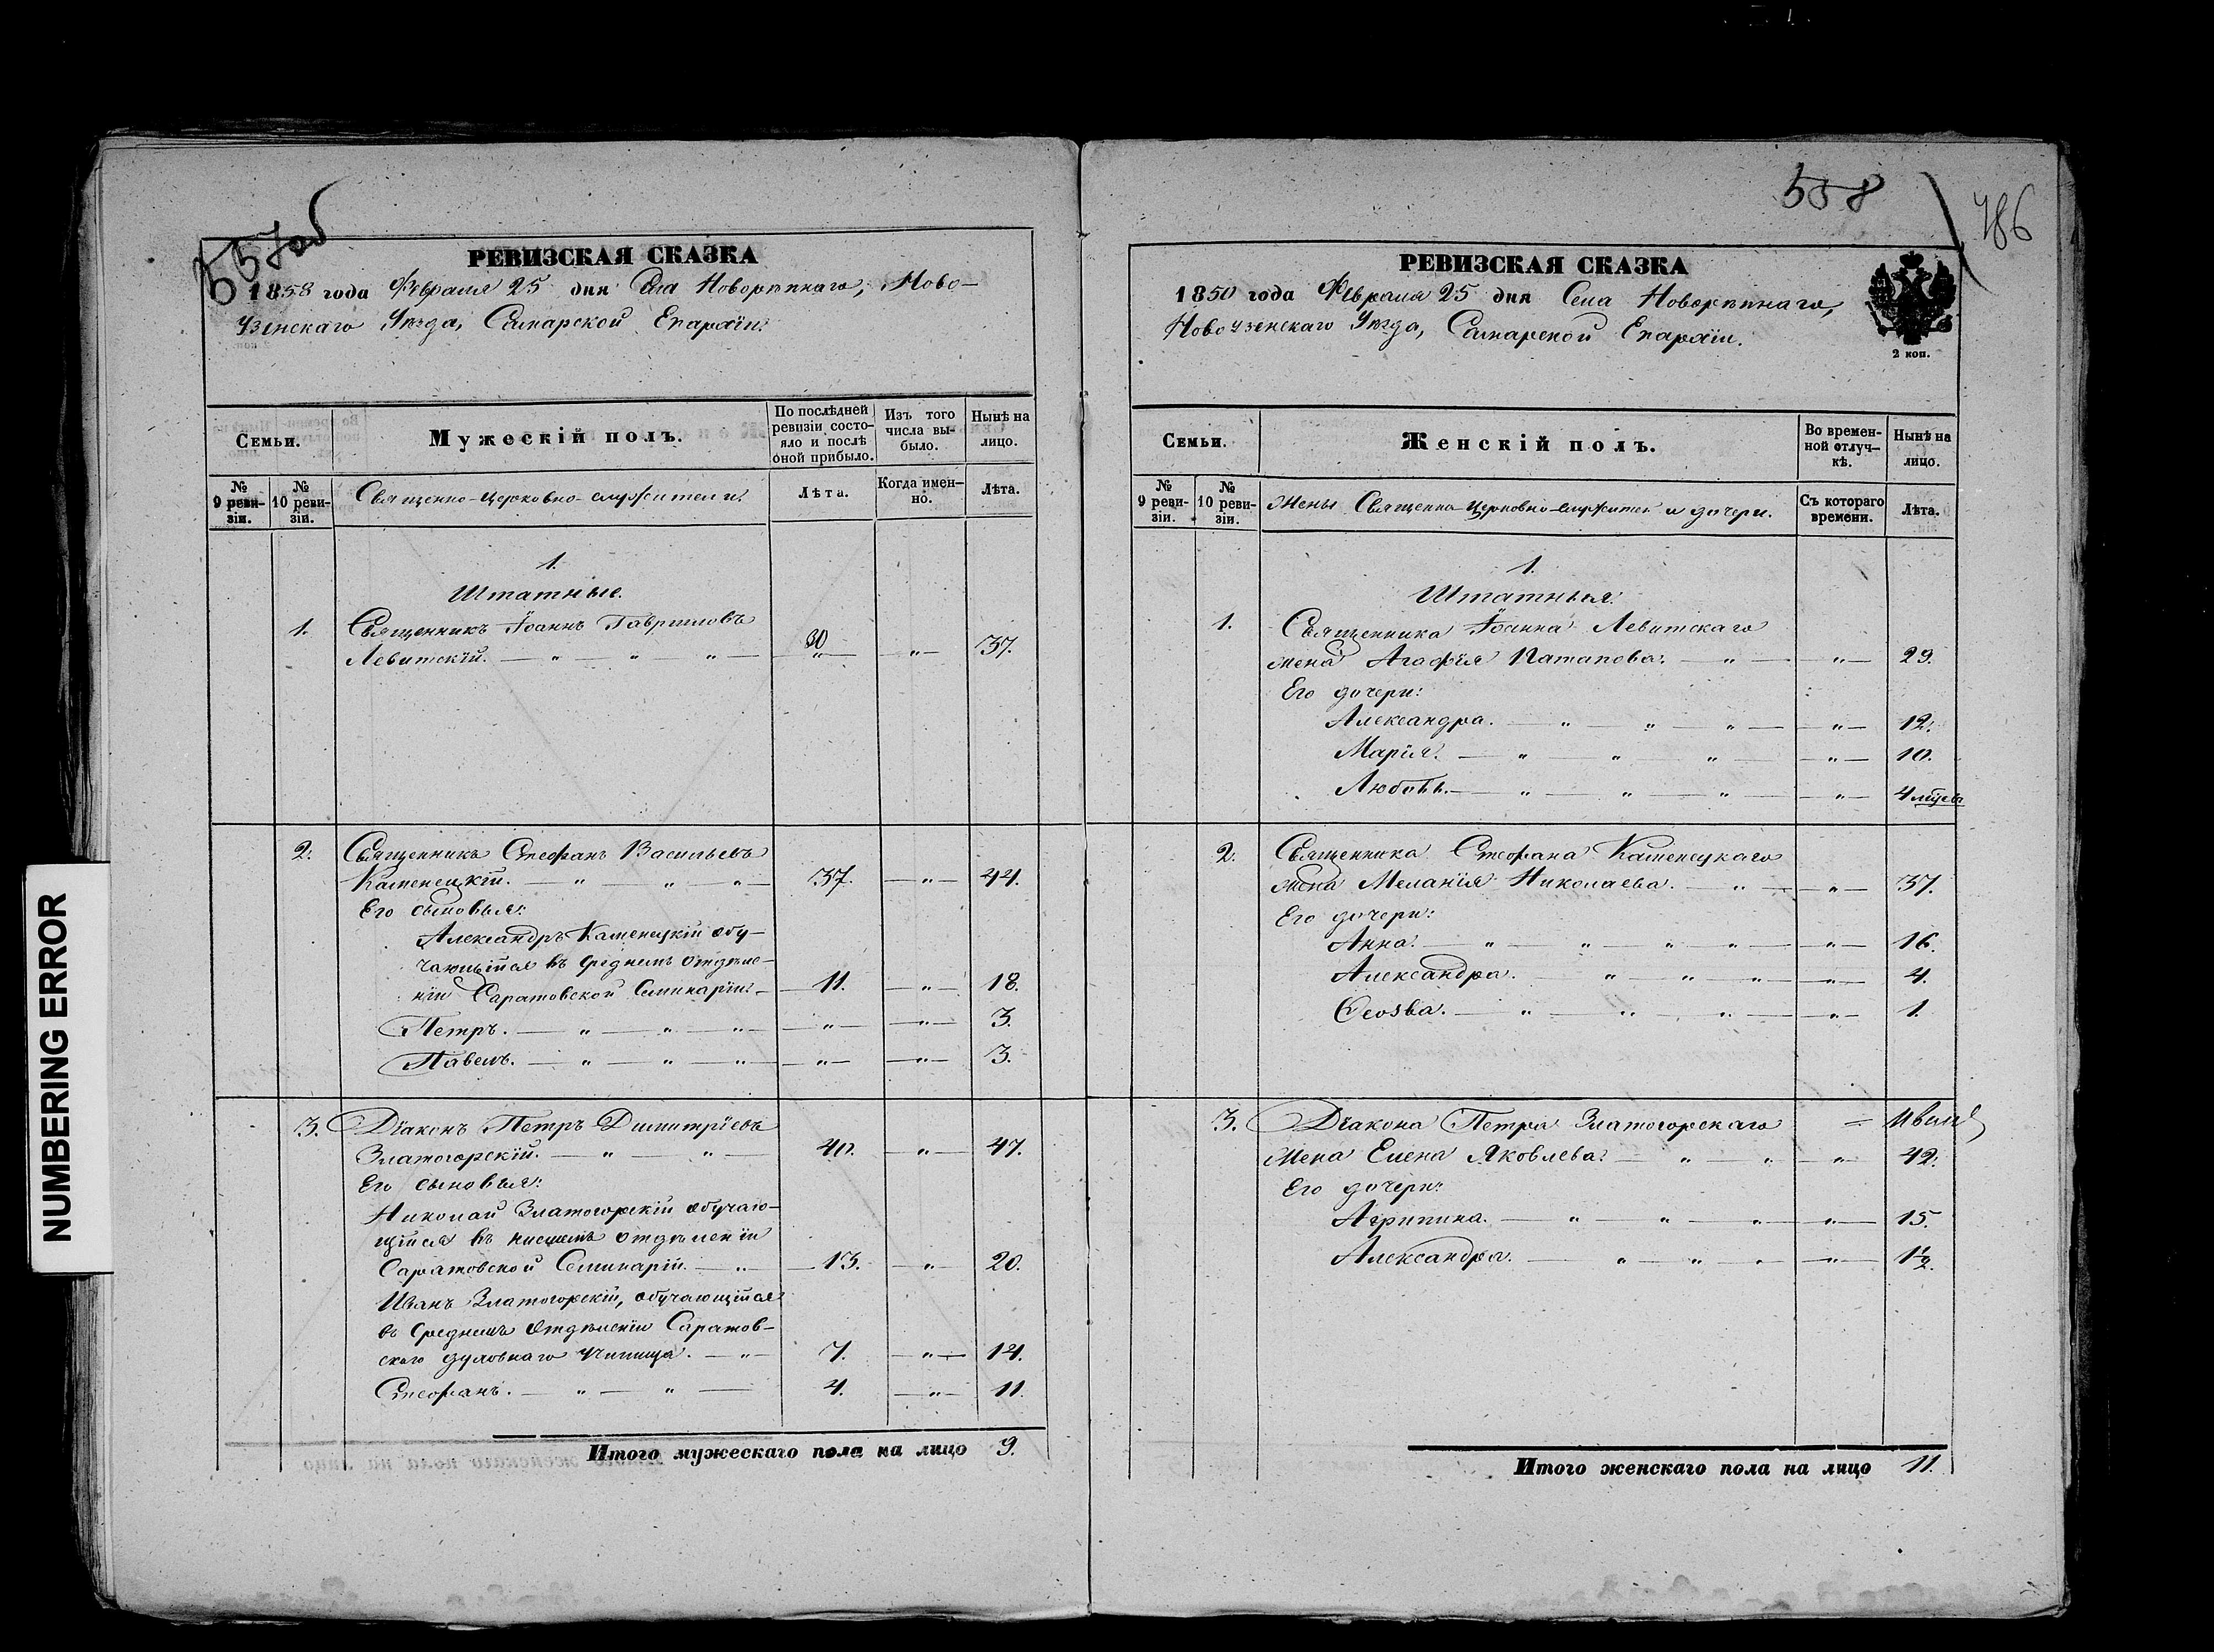 NUMBERING ERROR
557об
РЕВИЗСКАЯ СКАЗКА
1858 года Февраля 25 дня Села Новорѣпнаго, Ново-
узенскаго Уѣзда, Самарской Епархіи.
Семьи.
Мужескій полъ.
По послѣдней ревизіи состояло и послѣ оной прибыло.
Изъ того числа выбыло.
Нынѣ на лицо.
№ 9 ревизіи.
№ 10 ревизіи.
Священно-церковно-служители.
Лѣта.
Когда именно.
Лѣта.
1.
Штатные.
1. Священникъ Іоаннъ Гавриловъ
Левитскій. — " — " — " — 30 — " — 37.
2. Священникъ Стефанъ Васильевъ
Каменецкій. — " — " — " — 37. — " — 44.
Его сыновья:
Александръ Каменецкій обу-
чающійся въ Среднемъ Отдѣле-
ніи Саратовской Семинаріи. — 11. — " — 18.
Петръ. — " — " — " — " — " — 3.
Павелъ. — " — " — " — " — " — 3.
3. Діаконъ Петръ Димитріевъ
Златогорскій. — " — " — 40. — " — 47.
Его сыновья:
Николай Златогорскій обучаю-
щійся въ низшемъ отдѣленіи
Саратовской Семинаріи. — " — 13. — " — 20.
Иванъ Златогорскій, обучающійся
въ Среднемъ Отдѣленіи Саратов-
скаго духовнаго Училища. — " — 7. — " — 14.
Стефанъ. — " — " — 4. — " — 11.
Итого мужескаго пола на лицо 9.
558
786
РЕВИЗСКАЯ СКАЗКА
1850 года Февраля 25 дня Села Новорѣпнаго,
Новоузенскаго Уѣзда, Самарской Епархіи.
2 коп.
Семьи.
Женскій полъ.
Во временной отлучкѣ.
Нынѣ на лицо.
№ 9 ревизіи.
№ 10 ревизіи.
Жены Священно церковно-служител и дочери.
Съ котораго времени.
Лѣта.
1.
Штатныя.
1. Священника Іоанна Левитскаго
жена Агафія Патапова. — " — " — 29.
Его дочери:
Александра. — " — " — " — " — 12.
Марія. — " — " — " — " — 10.
Любовь. — " — " — " — " — 4
2. Священника Стефана Каменецкаго
жена Меланія Николаева. — " — " — 37.
Его дочери:
Анна. — " — " — " — " — " — 16.
Александра. — " — " — " — " — 4.
Ѳеозва. — " — " — " — " — 1.
3. Діакона Петра Златогорскаго
жена Елена Яковлева. — " — " — " — 42.
Его дочери:
Агрипина. — " — " — " — " — 15.
Александра. — " — " — " — " — 1½.
Итого женскаго пола на лицо 11.